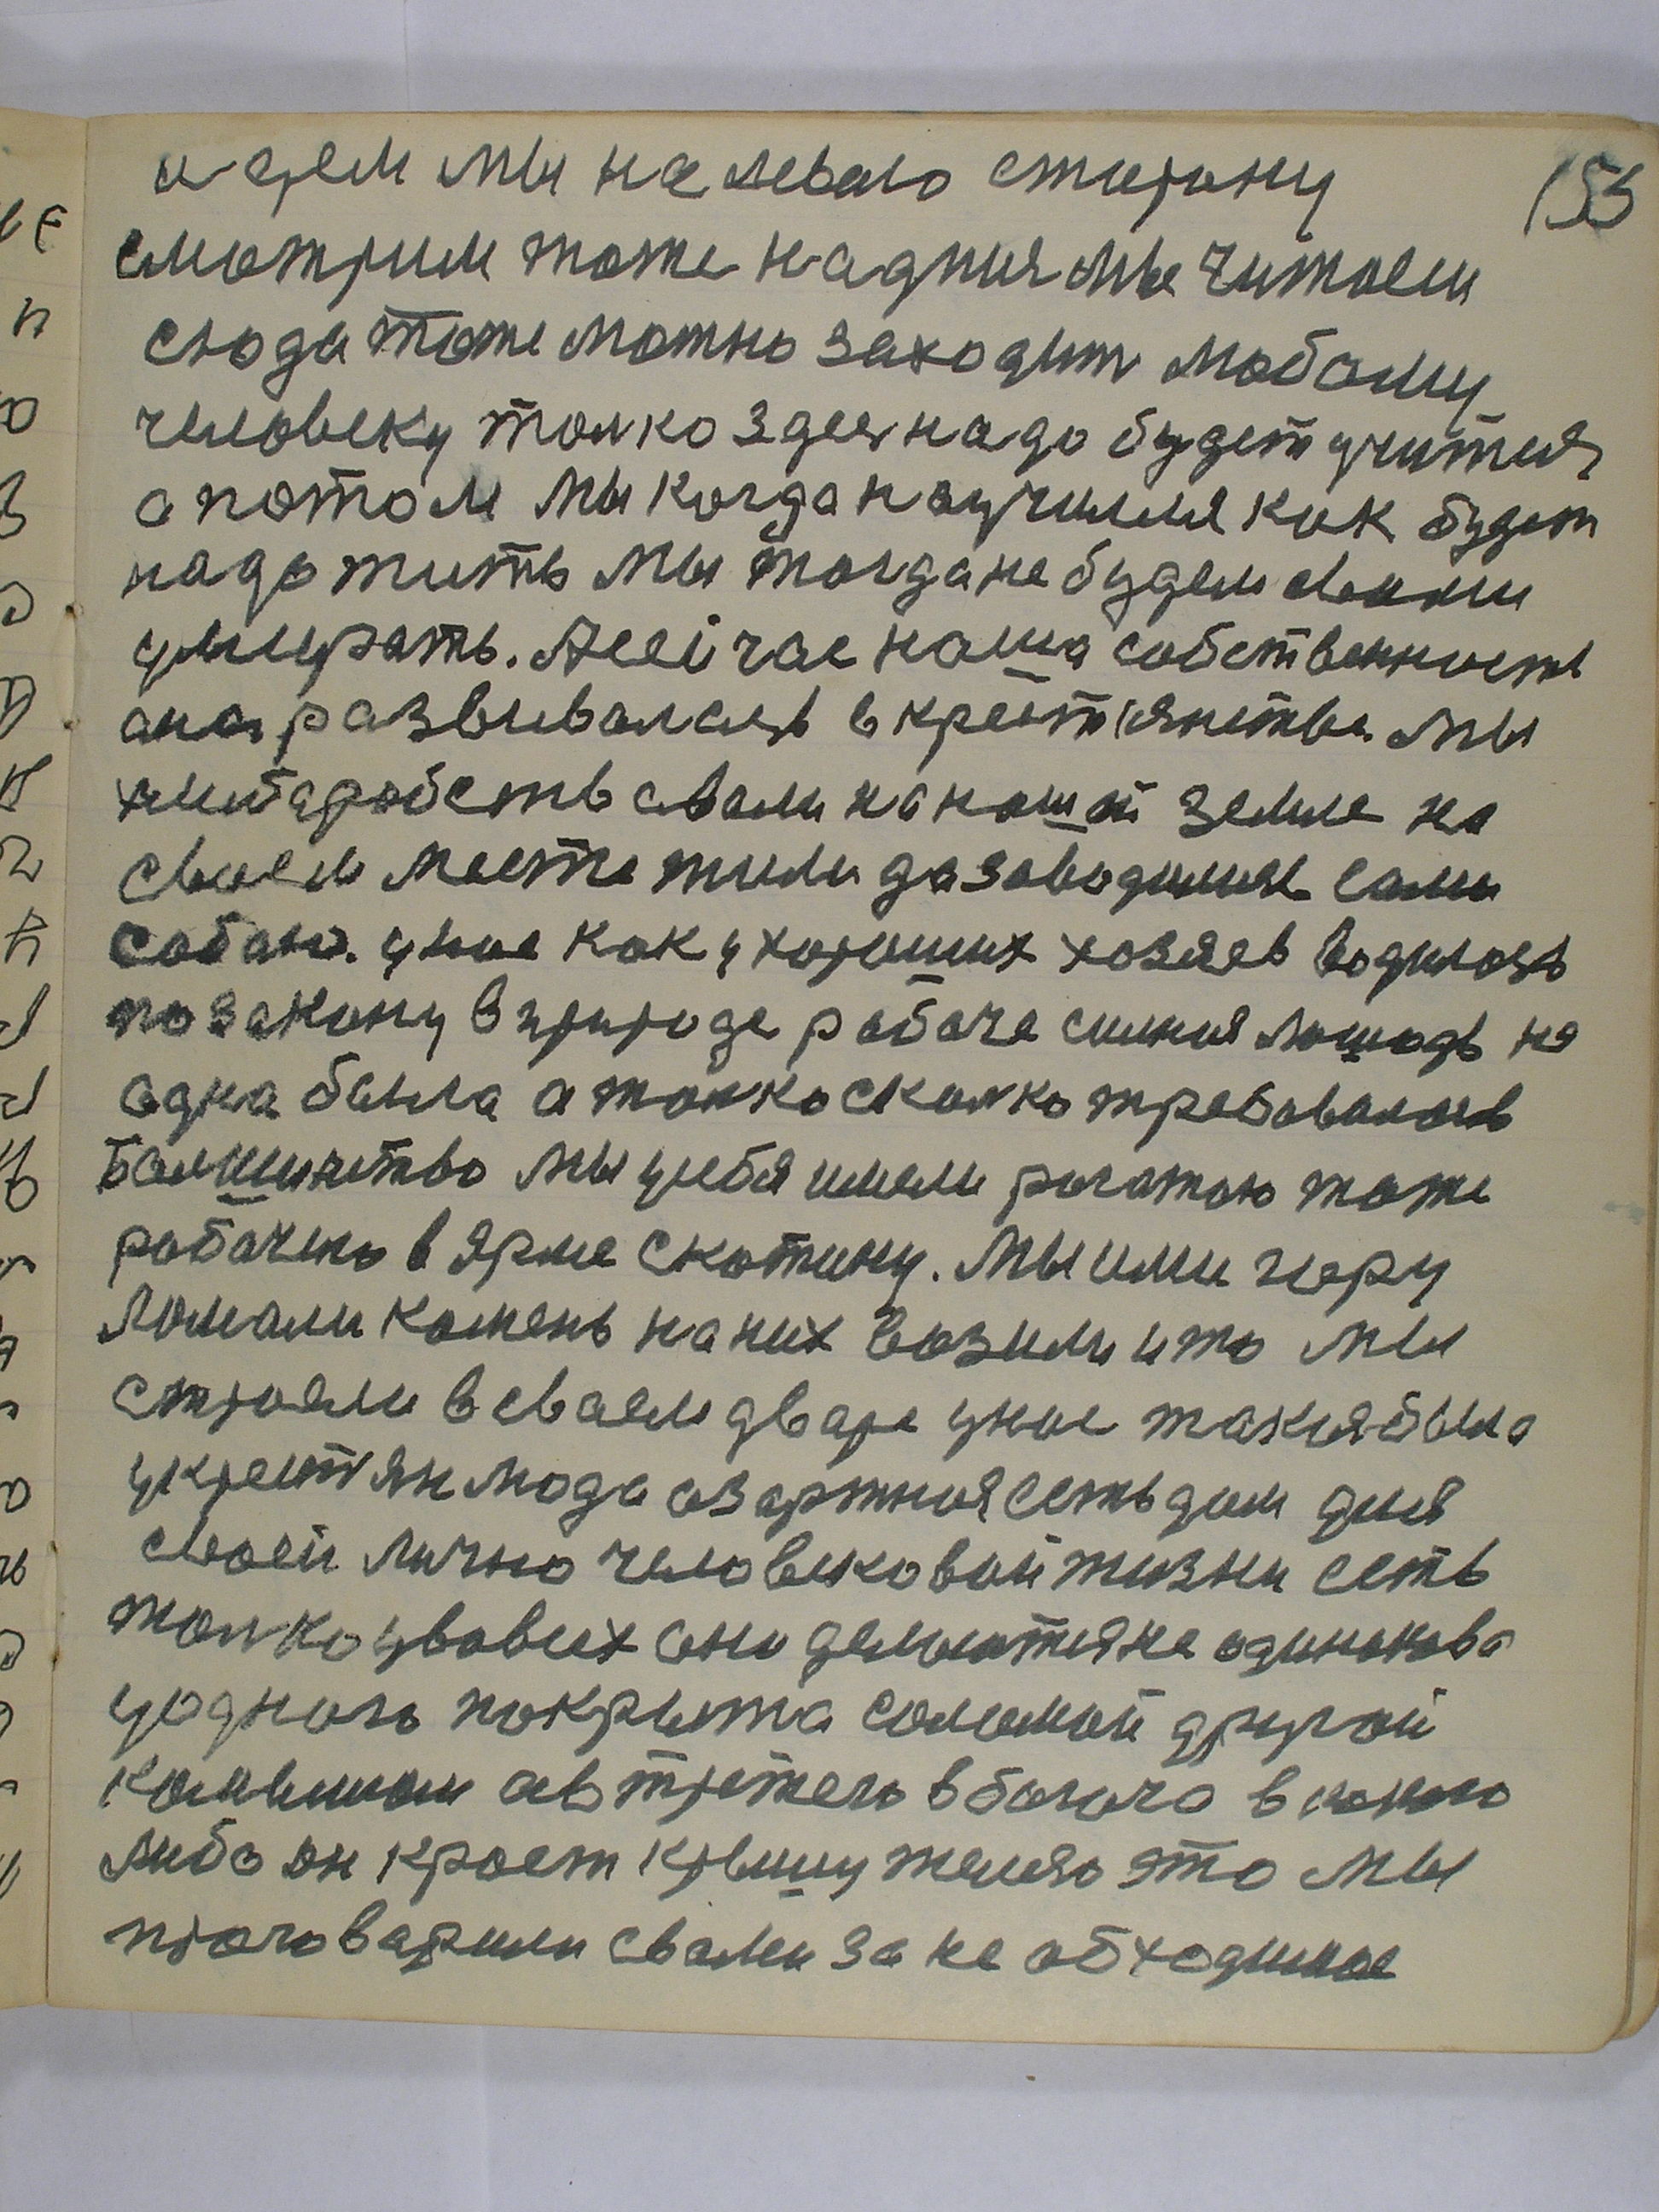 идем мы на леваю старану 155
смотрим тоже надпия мы читаем
сюда тоже можно заходит любому
человеку толко здес надо будет учится
а потом мы когда научимся как будет
надо жить мы тогда не будем с вами
умирать. А сейчас наша собственность
она развивалась в крестьянстве. Мы
хлибаробствавали на нашей земле на
своем месте жили да заводились сами
собаю. у нас как у хороших хозяев водилось
по закону в природе рабоче силная лошадь не
одна была а толко сколко требовалось
болшинство мы у себя имели рогатою тоже
рабочею в ярме скотину. Мы ими гору
ломали камень на них возили и то мы
строели в сваем дваре у нас такия была
у крестян мода азартная есть дом для
своей лично человековой жизни есть
толко у вовсех они делются не одинокова
у одного покрыта соломой другой
камышом а в третего в богача в
либо он кроет крышу желез это мы
проговарили свами за не обходимае